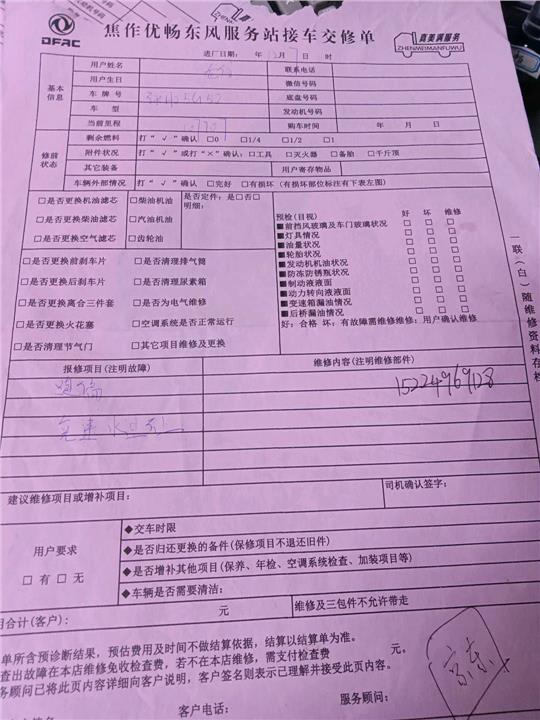 DFAC
焦作优畅东风服务站接车交修单
真美满服务
ZHENMEIMANFUWU
进厂日期: 年 7 日 时
基本信息
用户姓名 联系电话
用户生日 微信号码
车 牌 号 底盘号码
车 型 发动机号码
当前里程 购车时间 年 月 日
修前状态
剩余燃料 打“√”确认 □0 □1/4 □1/2 □1
附件状况 打“√”或打“×”确认:□工具 □灭火器 □备胎 □千斤顶
其它装备 用户寄存物品
车辆外部情况 打“√”确认 □完好 □有损坏(有损坏部位标注有下表左图)
□是否更换机油滤芯 □柴油机油 是否定件:是□否□
明细:
□是否更换柴油滤芯 □汽油机油
□是否更换空气滤芯 □齿轮油
□是否更换前刹车片 □是否清理排气筒
□是否更换后刹车片 □是否清理尿素箱
□是否更换离合三件套 □是否为电气维修
□是否更换火花塞 □空调系统是否正常运行
□是否清理节气门 □其它项目维修及更换
预检(目视) 好 坏 维修
■前挡风玻璃及车门玻璃状况 □ □ □
■灯具情况 □ □ □
■油量状况 □ □ □
■轮胎状况 □ □ □
■发动机机油状况 □ □ □
■防冻防锈瓶状况 □ □ □
■制动液液面 □ □ □
■动力转向液液面 □ □ □
■变速箱漏油情况 □ □ □
■后桥漏油情况 □ □ □
好:合格 坏:有故障需维修维修:用户确认维修
一联(白)随维修资料存档
报修项目(注明故障) 维修内容(注明维修部件)
15224969128
建议维修项目或增补项目: 司机确认签字:
用户要求
□ 有 □ 无
◆交车时限
◆是否归还更换的备件(保修项目不退还旧件)
◆是否增补其他项目(保养、年检、空调系统检查、加装项目等)
◆车辆是否需要清洁:
用合计(客户): 元 维修及三包件不允许带走
单所含预诊断结果,预估费用及时间不做结算依据,结算以结算单为准。
查出故障在本店维修免收检查费,若不在本店维修,需支付检查费 元。
务顾问已将此页内容详细向客户说明,客户签名则表示已理解并接受此页内容。
客户电话: 服务顾问: